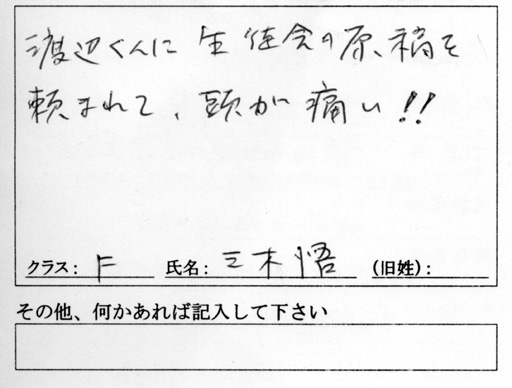 渡辺くんに生徒会の原稿を
頼まれて、頭が痛い!!
クラス: F 氏名: 三木悟 (旧姓):
その他、何かあれば記入して下さい